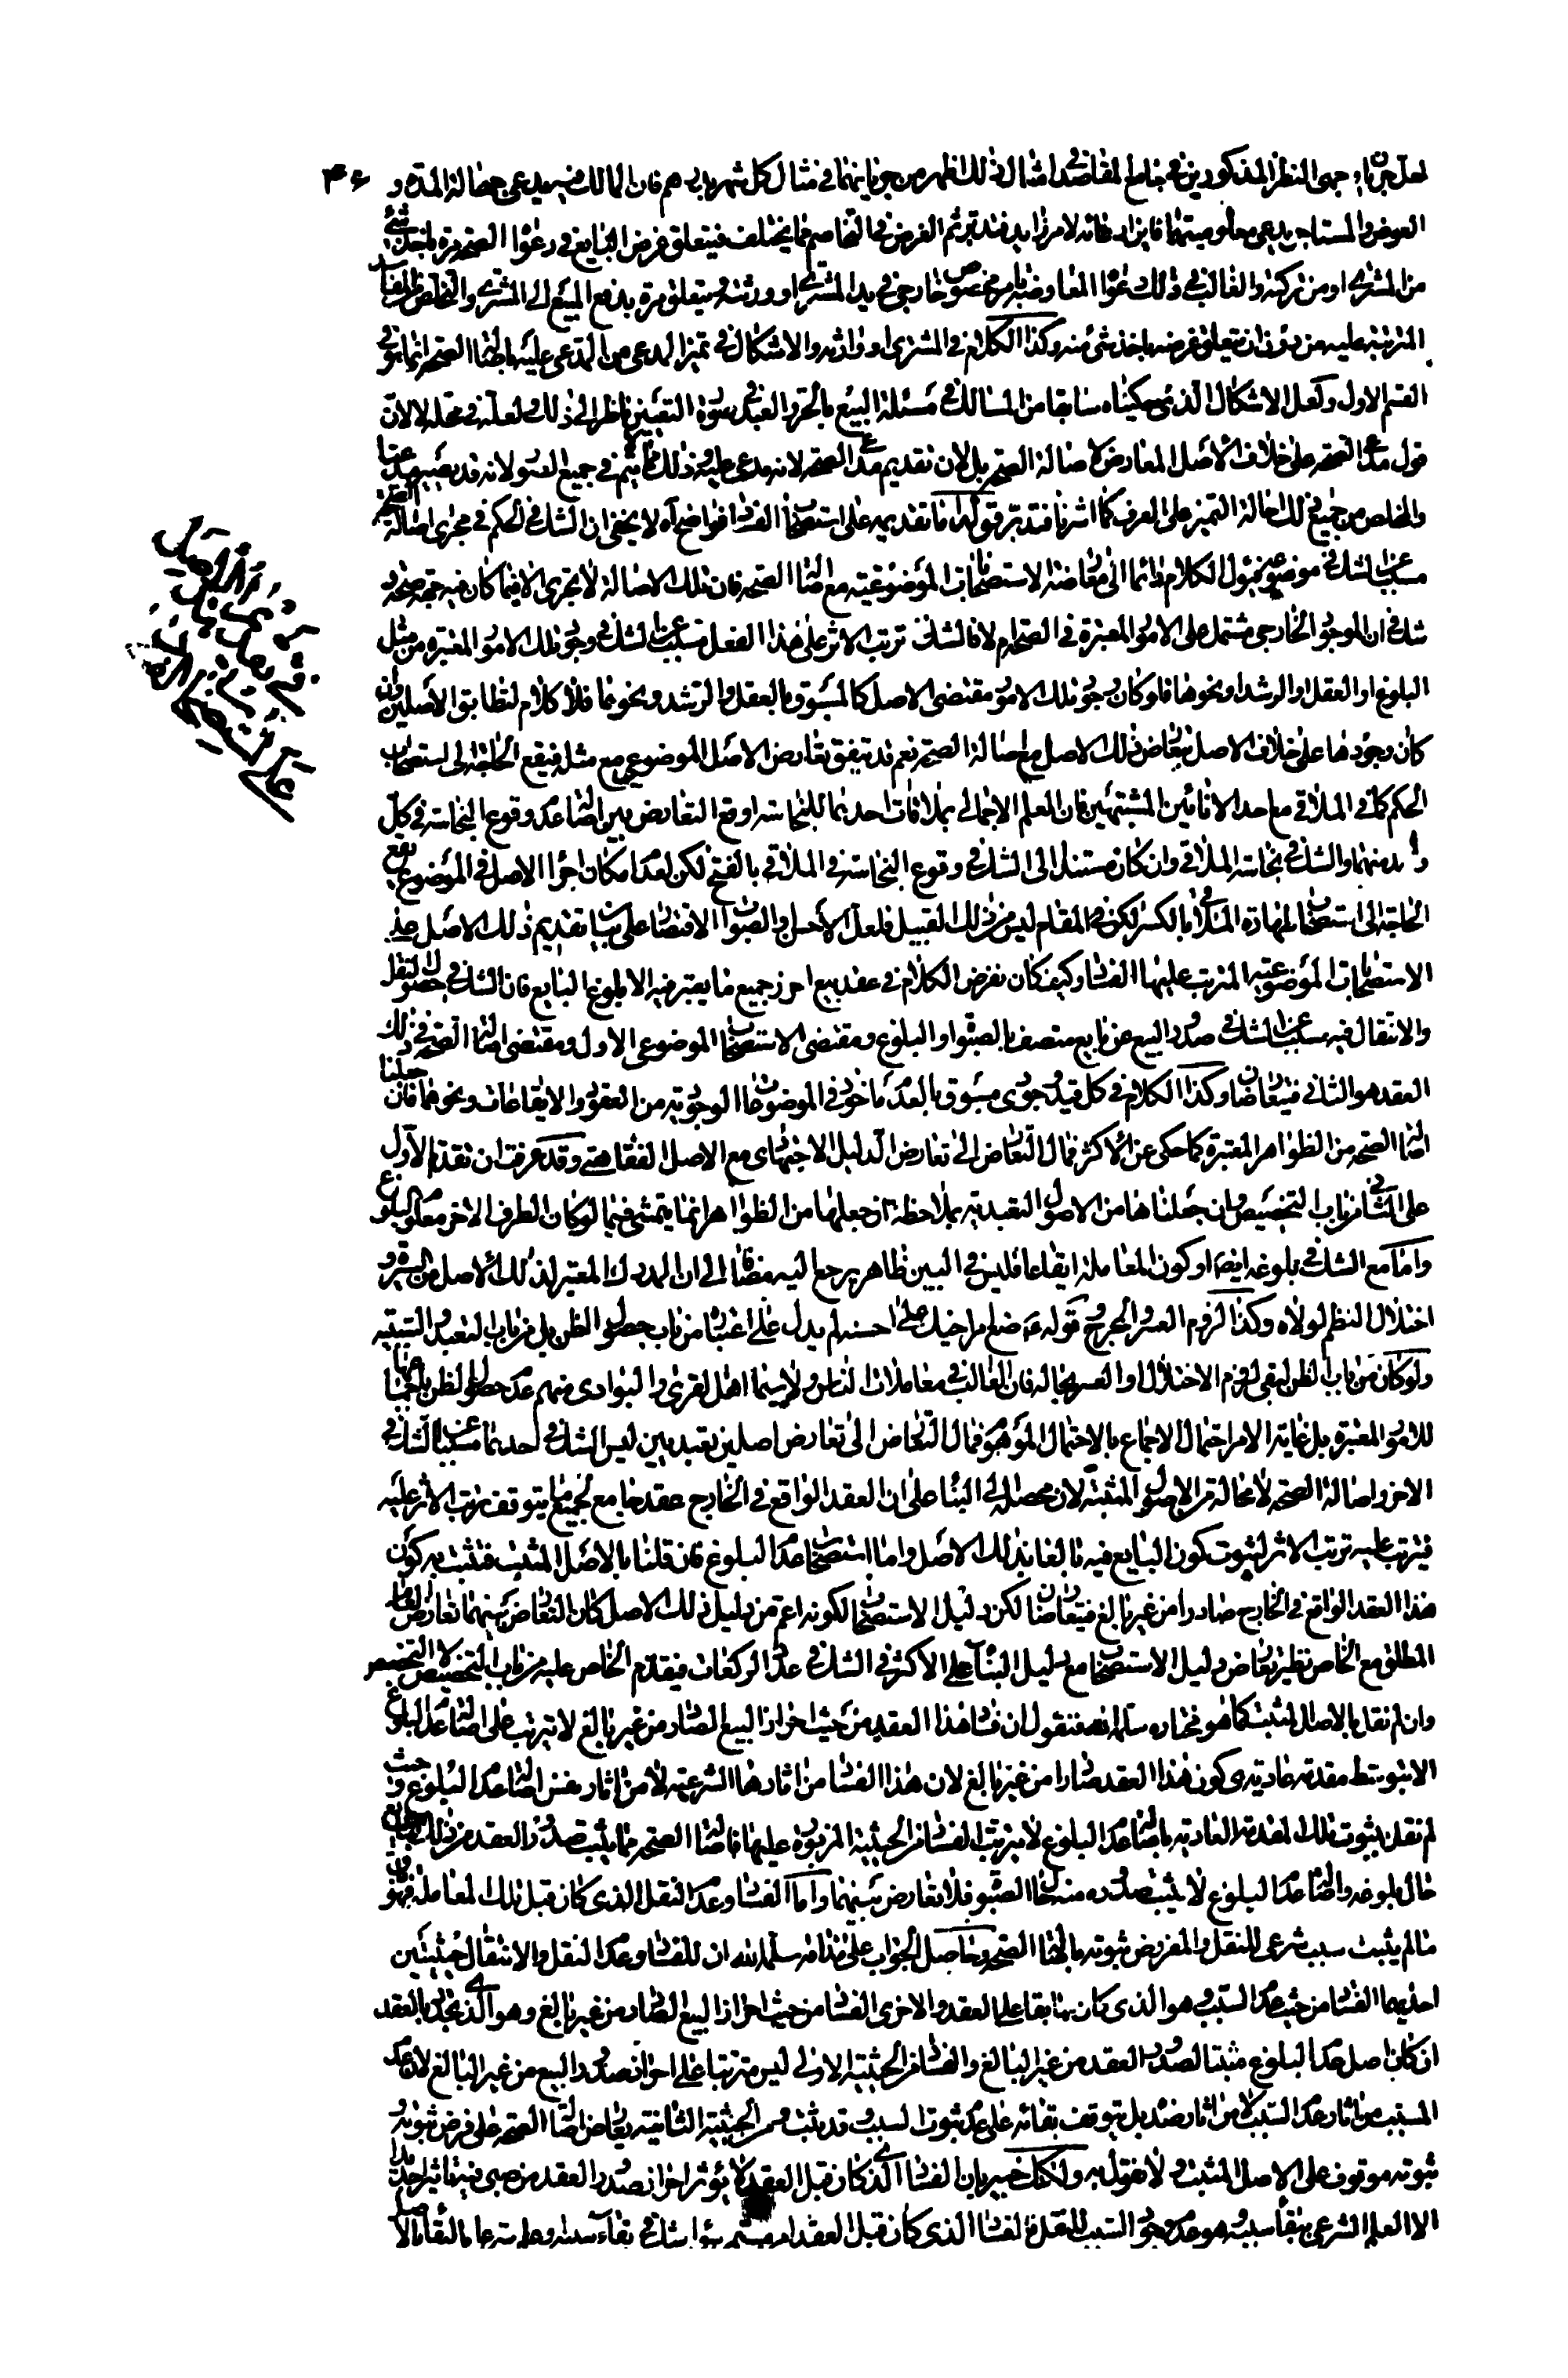 لعل جريان وجهى النظر المذكورين فى جامع المقاصد فى امثال ذلك اظهر من جريانهما فى مثال كل شهر بدرهم فان المالك فيه يدعى جهالة المدة و ۴۶
العوض والمستاجر يدعى معلوميتهما فاين زايد فتدبر ثم الغرض فى التخاصم مما يختلف فيتعلق غرض البايع فى دعوى الصحة مرة باخذ شئ
من المشترى او من تركته والغالب فى ذلك دعوى المعاوضة بامر مخصوص خارجى فى يد المشترى او ورثته ويتعلق مرة بدفع المبيع الى المشترى والتخلص
المترتبة عليه من دون ان يتعلق غرضه باخذ شئ منه وكذا الكلام فى المشترى او وارثه والاشكال فى تميز المدعى من المدعى عليه باصالة الصحة انما هو فى
القسم الاول ولعل الاشكال الذى حكيناه سابقا من المسالك فى مسئلة البيع بالحر والعبد فى صورة التعيين ناظر الى ذلك ولعله فى محله لا لان
قول مدعى الصحة على خلاف الاصل المعارض لاصالة الصحة بل لان تقديم مدعى الصحة لانه مدعى عليه وذلك لا يتم فى جميع الصور لانه قد يصير مدعيا
والمخلص من جميع ذلك احالة التميز على العرف كما اشرنا فتدبر قوله اما تقديمه على استصحاب الفساد فواضح اه لا يخفى ان الشك فى الحكم فى مجرى اصالة الصحة
مسبب عن الشك فى موضوعه فيؤل الكلام دائما الى معارضة الاستصحابات الموضوعية مع اصالة الصحة فان تلك الاصالة لا تجرى الا فيما كان فيه جهة صحة و
شك فى ان الموجود الخارجى مشتمل على الامور المعتبرة فى الصحة ام لا فالشك فى ترتب الاثر على هذا الفعل مسبب عن الشك فى وجود تلك الامور المعتبرة من مثل
البلوغ او العقل او الرشد او نحوها فلو كان وجود تلك الامور مقتضى الاصل كالمسبوق بالعقل والرشد ونحوهما فلا كلام لتطابق الاصلين وان
كان وجودها على خلاف الاصل فيعارض ذلك الاصل مع اصالة الصحة نعم قد يتفق تعارض الاصل الموضوعى مع مثله فيقع الحاجة الى استصحاب
الحكم كما فى الملاقى مع احد الانائين المشتبهين فان العلم الاجمالى بملاقات احدهما للنجاسة اوقع التعارض بين اصالة عدم وقوع النجاسة فى كل
واحد منهما والشك فى نجاسة الملاقى وان كان مستندا الى الشك فى وقوع النجاسة فى الملاقى بالفتح لكن لعدم امكان اجراء الاصل فى الموضوع يقع
الحاجة الى استصحاب طهارة الملاقى بالكسر لكن المقام ليس من ذلك القبيل فلعل الاحسن والصواب الاقتصار على بيان تقديم ذلك الاصل على
الاستصحابات الموضوعية المترتب عليها الفساد وكيف كان نفرض الكلام فى عقد بيع احرز جميع ما يعتبر فيه الا بلوغ البايع فان الشك فى حصول النقل
والانتقال فيه مسبب عن الشك فى صدور البيع عن بايع متصف بالصبى او البلوغ ومقتضى الاستصحاب الموضوعى الاول ومقتضى اصالة الصحة فى ذلك
العقد هو الثانى فيتعارضان وكذا الكلام فى كل قيد وجودى مسبوق بالعدم ماخوذ فى الموضوعات الوجودية من العقود والايقاعات ونحوهما فان جعلنا
اصالة الصحة من الظواهر المعتبرة كما حكى عن الاكثر فمآل التعارض الى تعارض الدليل الاجتهادى مع الاصل الفقاهتى وقد عرفت ان تقدم الاول
على الثانى من باب التخصيص وان جعلناها من الاصول التعبدية بملاحظة ان جعلها من الظواهر انما يتمشى فيما لو كان الطرف الاخر معلوم البلوغ
واما مع الشك فى بلوغه ايضا او كون المعاملة ايقاعا فليس فى البين ظاهر يرجع اليه مضافا الى ان المدرك المعتبر لذلك الاصل من السيرة و
اختلال النظم لولاه وكذا لزوم العسر والحرج وقوله ع ضع امر اخيك على احسنه لم يدل على اعتباره من باب حصول الظن بل من باب التعبد والسببية
ولو كان من باب الظن لبقى لزوم الاختلال او العسر بحاله فان الغالب فى معاملات الناس ولا سيما اهل القرى والبوادى منهم عدم حصول الظن باحرازها
للامور المعتبرة بل غاية الامر احتمال الاجماع بالاحتمال الموهوم فمآل التعارض الى تعارض اصلين تعبديين ليس الشك فى احدهما مسببا عن الشك فى
الاخر واصالة الصحة لا محالة من الاصول المثبتة لان محصلها الى البناء على ان العقد الواقع فى الخارج عقد جامع لجميع ما يتوقف ترتب الاثر عليه
فيترتب عليه ترتب الاثر لثبوت كون البايع فيه بالغا بذلك الاصل واما استصحاب عدم البلوغ فان قلنا بالاصل المثبت فنثبت به كون
هذا العقد الواقع فى الخارج صادرا من غير بالغ فيتعارضان لكن دليل الاستصحاب لكونه اعم من دليل ذلك الاصل كان التعارض بينهما تعارض العام
المطلق مع الخاص نظير تعارض دليل الاستصحاب مع دليل البناء على الاكثر فى الشك فى عدد الركعات فيقدم الخاص عليه من باب التخصيص لا التخصص
وان لم نقل بالاصل المثبت كما هو مختاره سلمه الله فنقول ان فساد هذا العقد من حيث احراز البيع الصادر من غير بالغ لا يترتب على اصالة عدم البلوغ
الا بتوسط مقدمة عادية هى كون هذا العقد صادرا من غير بالغ لان هذا الفساد من اثارها الشرعية لا من اثار نفس اصالة عدم البلوغ وحيث
لم نقل بثبوت تلك المقدمة العادية باصالة عدم البلوغ لا يترتب الفساد من الحيثية المزبورة عليها فاصالة الصحة مما يثبت صدور العقد من ذلك البايع
حال بلوغه واصالة عدم البلوغ لا يثبت صدوره منه حال الصبى فلا تعارض بينهما واما الفساد وعدم النقل الذى كان قبل تلك المعاملة فهو
ما لم يثبت سبب شرعى للنقل والمفروض ثبوته باصالة الصحة وحاصل الجواب على مذاقه سلمه الله ان للفساد وعدم النقل والانتقال حيثيتين
احديهما الفساد من حيث عدم السبب وهو الذى كان سابقا على العقد والاخرى الفساد من حيث احراز البيع الصادر من غير بالغ وهو الذى يتجدد بالعقد
ان كان اصل عدم البلوغ مثبتا لصدور العقد من غير البالغ والفساد من الحيثية الاولى ليس مترتبا على احراز صدور البيع من غير البالغ لان عدم
المسبب من اثار عدم السبب لا من اثار ضده بل يتوقف بقائه على عدم ثبوت السبب وقد يثبت ومن الحيثية الثانية يعارض اصالة الصحة على فرض ثبوته و
ثبوته موقوف على الاصل المثبت ولا نقول به ولكنك خبير بان الفساد الذى كان قبل العقد لا يؤثر احراز صدور العقد من صبى
الا العلم الشرعى ببقاء سببه وهو عدم وجود السبب للنقل فالفساد الذى كان قبل العقد